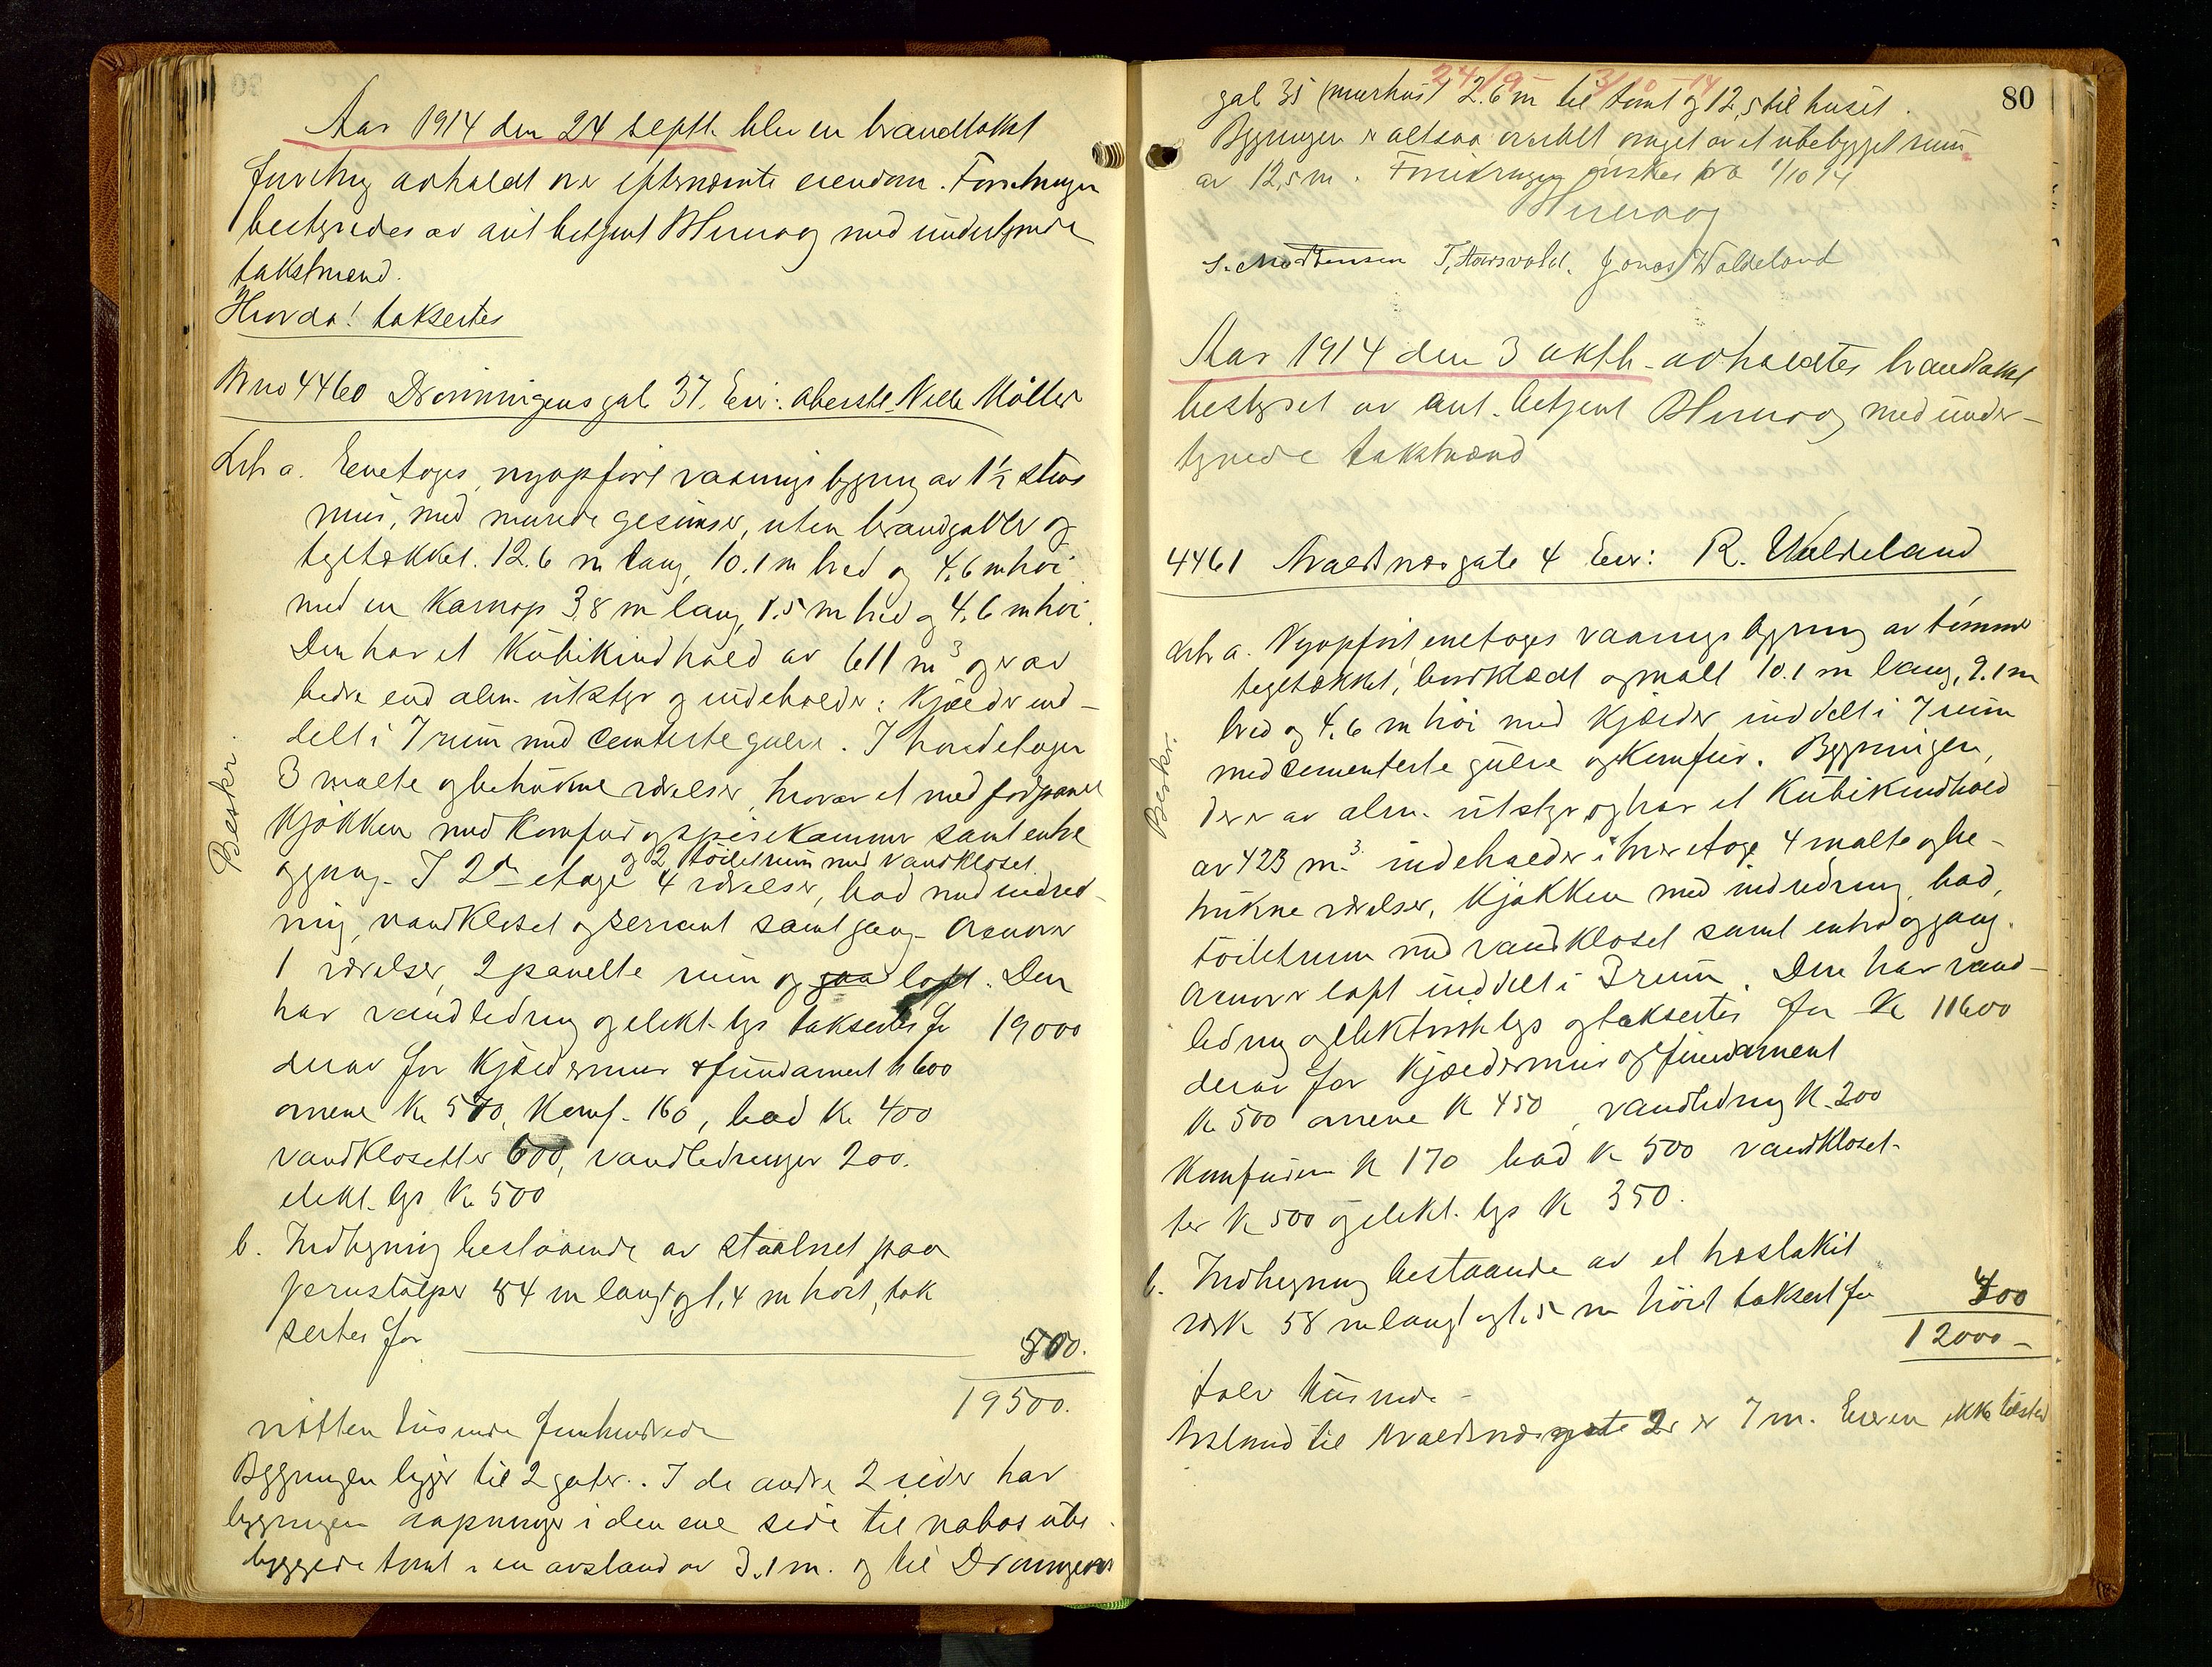 Aar 1914 den 24 septb. blev en brandtakst
forretng avholdt over efternævnte eiendom. Forretningen
bestyredes av aut betjent med undertegnede
takstmænd.
Hvorda! taksertes
Br no 4460 Dronningens gate 37. Eier: oberstl. Møller
Litr a. Enetages, nyopført vaaningsbygning av 1½ stens
mur, med murede gesimser, uten brandgavler og
tegltækket. 12.6 m lang, 10.1 m bred og 4.6 m høi
med en Karnap 3,8 m lang, 1.5 m bred og 4.6 m høi.
Den har et Kubikindhold av 611 m³ og er av
bedre end alm. utstyr og indeholder: Kjælder ind-
delt i 7 rum med cementerte gulve. I hovedetagen
3 malte og betrukne værelser, hvorav et med fodpanel
Kjøkken med Komfur og spisekammer samt entre
og 2 toiletrum med vandkloset
og gang. I 2den etage 4 værelser, bad med indred-
ning, vandkloset og servant samt gang. Ovenover
1 værelser, 2 panelte rum og loft. Den
har vandledning og elekt. lys taksertes for 19000
derav for Kjældermur & fundament K 600
ovnene Kr 570, Komf. 160, bad Kr 400
vandklosetter 600, vandledninger 200.
elekt. lys Kr 500
Beskr.
b. Indhegning bestaaende av staalnet paa
jernstolper 54 m langt og 1,4 m høit, tak
sertes for 500.
19500.
nitten tusinde femhundrede
Bygningen ligger til 2 gater. I de andre 2 sider har
bygningen aapninger i den ene side til nabos ube
byggede tomt i en avstand av 3.1 m. og til Dronningens
80
24/9 - 3/10 - 14
gat 35 (murhus) 2.6 m til tomt og 12,5 til huset.
Bygningen er altsaa overalt omgit av et ubebygget rum
av 12,5 m. Forsikringen ønskes fra 1/10 14
S. Mortensen T. Jonas Waldeland
Aar 1914 den 3 oktb. avholdtes brandtakst
bestyret av aut. betjent med under-
tegnede takstmænd
4461 Avaldsnesgate 4 Eier: R. Waldeland
Litr a. Nyopført, enetages vaaningsbygning av tømmer
tegltækket, bordklædt og malt 10.1 m lang, 9.1 m
bred og 4.6 m høi med Kjælder inddelt i 7 rum
med cementerte gulve og Komfur. Bygningen,
der er av alm. utstyr og har et Kubikindhold
av 423 m³. indeholder i hver etage 4 malte og be-
trukne værelser, Kjøkken med indredning, bad,
toiletrum med vandkloset samt entre og gang.
Ovenover loft inddelt i 3 rum. Den har vand-
ledning og elektrisk lys og taksertes for Kr 11600
derav for Kjældermur og fundament
Kr 500 ovnene K 450, vandledning K. 200
Komfurene K 170 bad K 500 vandkloset-
ter K 500 og elekt. lys K 350.
Beskr.
b. Indhegning bestaaende av et hvitlakit
værk 58 m langt og 1,5 m høit taksert for 400
12000 -
tolv tusinde -
Avstand til Avaldsnesgate 2 er 7 m. Eieren ikke tilsted